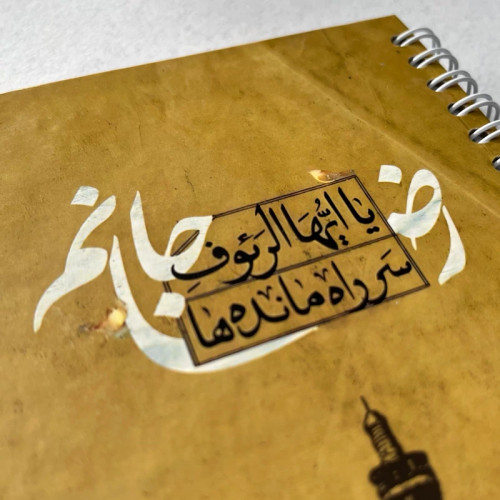 رضا جانم
یا ایُّهَا الرَئوفِ
سر راه مانده‌ها